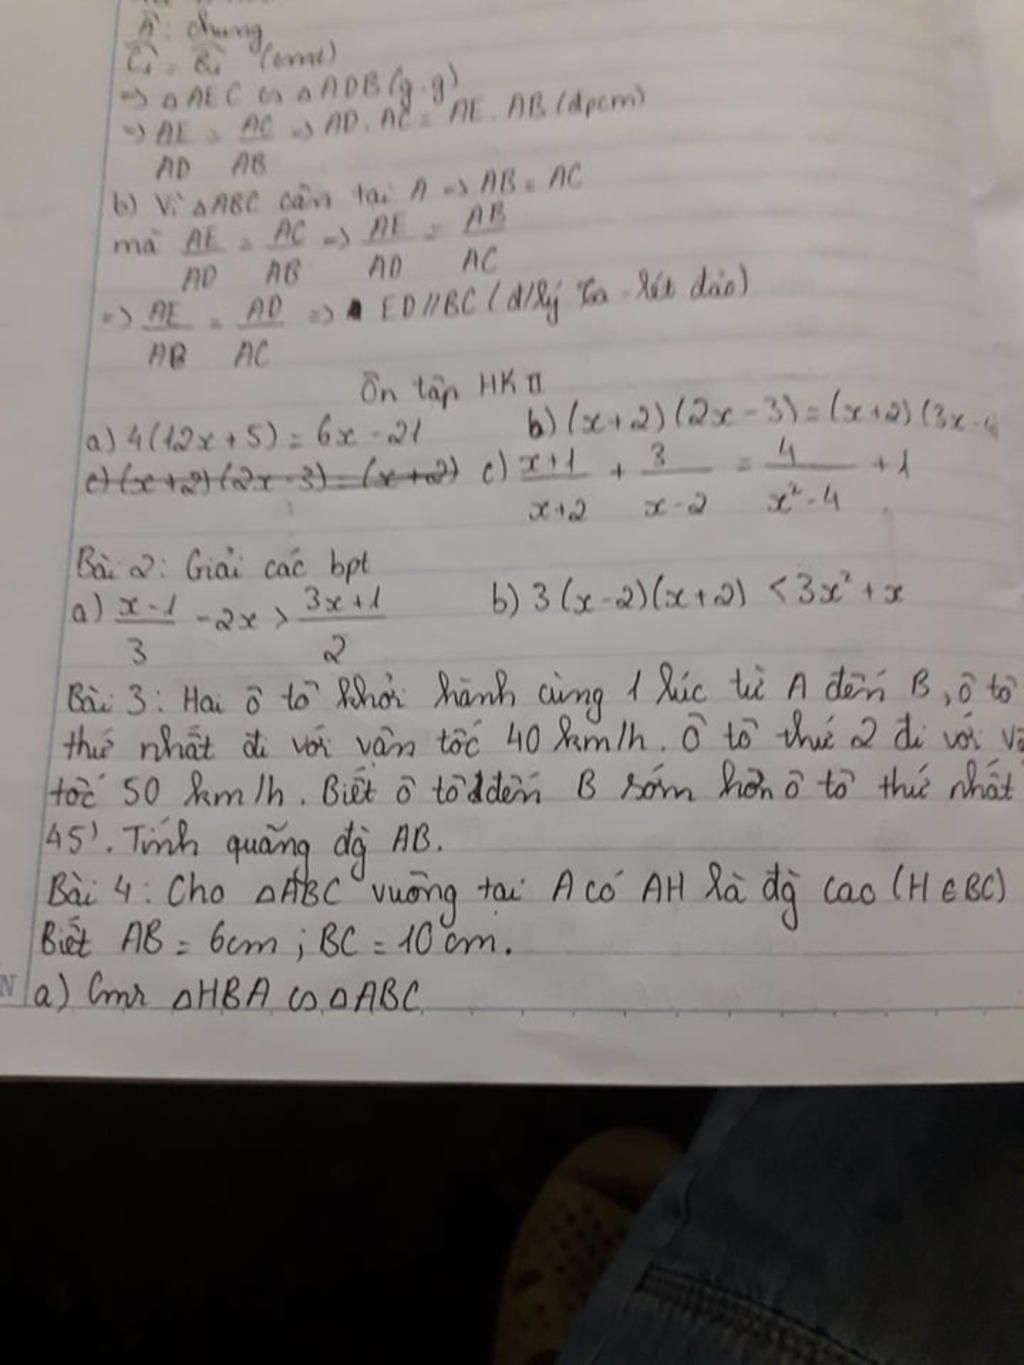 Â: chung
Ĉ₁ = B̂₁ (cmt)
=> △AEC ∽ △ADB (g.g)
=> AE/AD = AC/AB => AD. AC = AE. AB (đpcm)
b) Vì △ABC cân tại A => AB = AC
mà AE/AD = AC/AB => AE/AD = AB/AC
=> AE/AB = AD/AC => ED//BC (đ/lý Ta-lét đảo)
Ôn tập HK II
a) 4(12x+5) = 6x - 21 b) (x+2)(2x-3) = (x+2)(3x-
c) (x+2)(2x-3) = (x+2) c) x+1/x+2 + 3/x-2 = 4/x²-4 + 1
Bài 2: Giải các bpt
a) x-1/3 - 2x > 3x+1/2 b) 3(x-2)(x+2) < 3x² + x
Bài 3: Hai ô tô khởi hành cùng 1 lúc từ A đến B, ô tô
thứ nhất đi với vân tốc 40 km/h. Ô tô thứ 2 đi với
tốc 50 km/h. Biết ô tô 2 đến B sớm hơn ô tô thứ nhất
45'. Tính quãng đg AB.
Bài 4: Cho △ABC vuông tại A có AH là đg cao (H ∈ BC)
Biết AB = 6cm ; BC = 10 cm.
a) Cmr △HBA ∽ △ABC